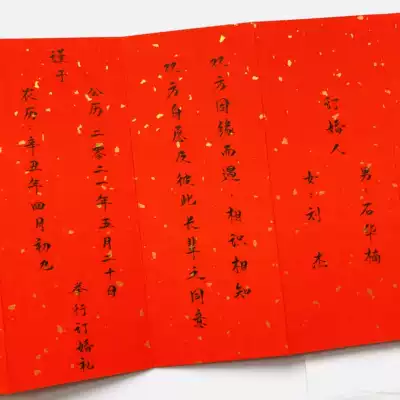 订婚人
男：石华楠
女：刘杰
双方因缘而遇 相识相知
双方自愿及彼此长辈之同意
谨于
公历：二零二一年五月二十日
农历：辛丑年四月初九
举行订婚礼